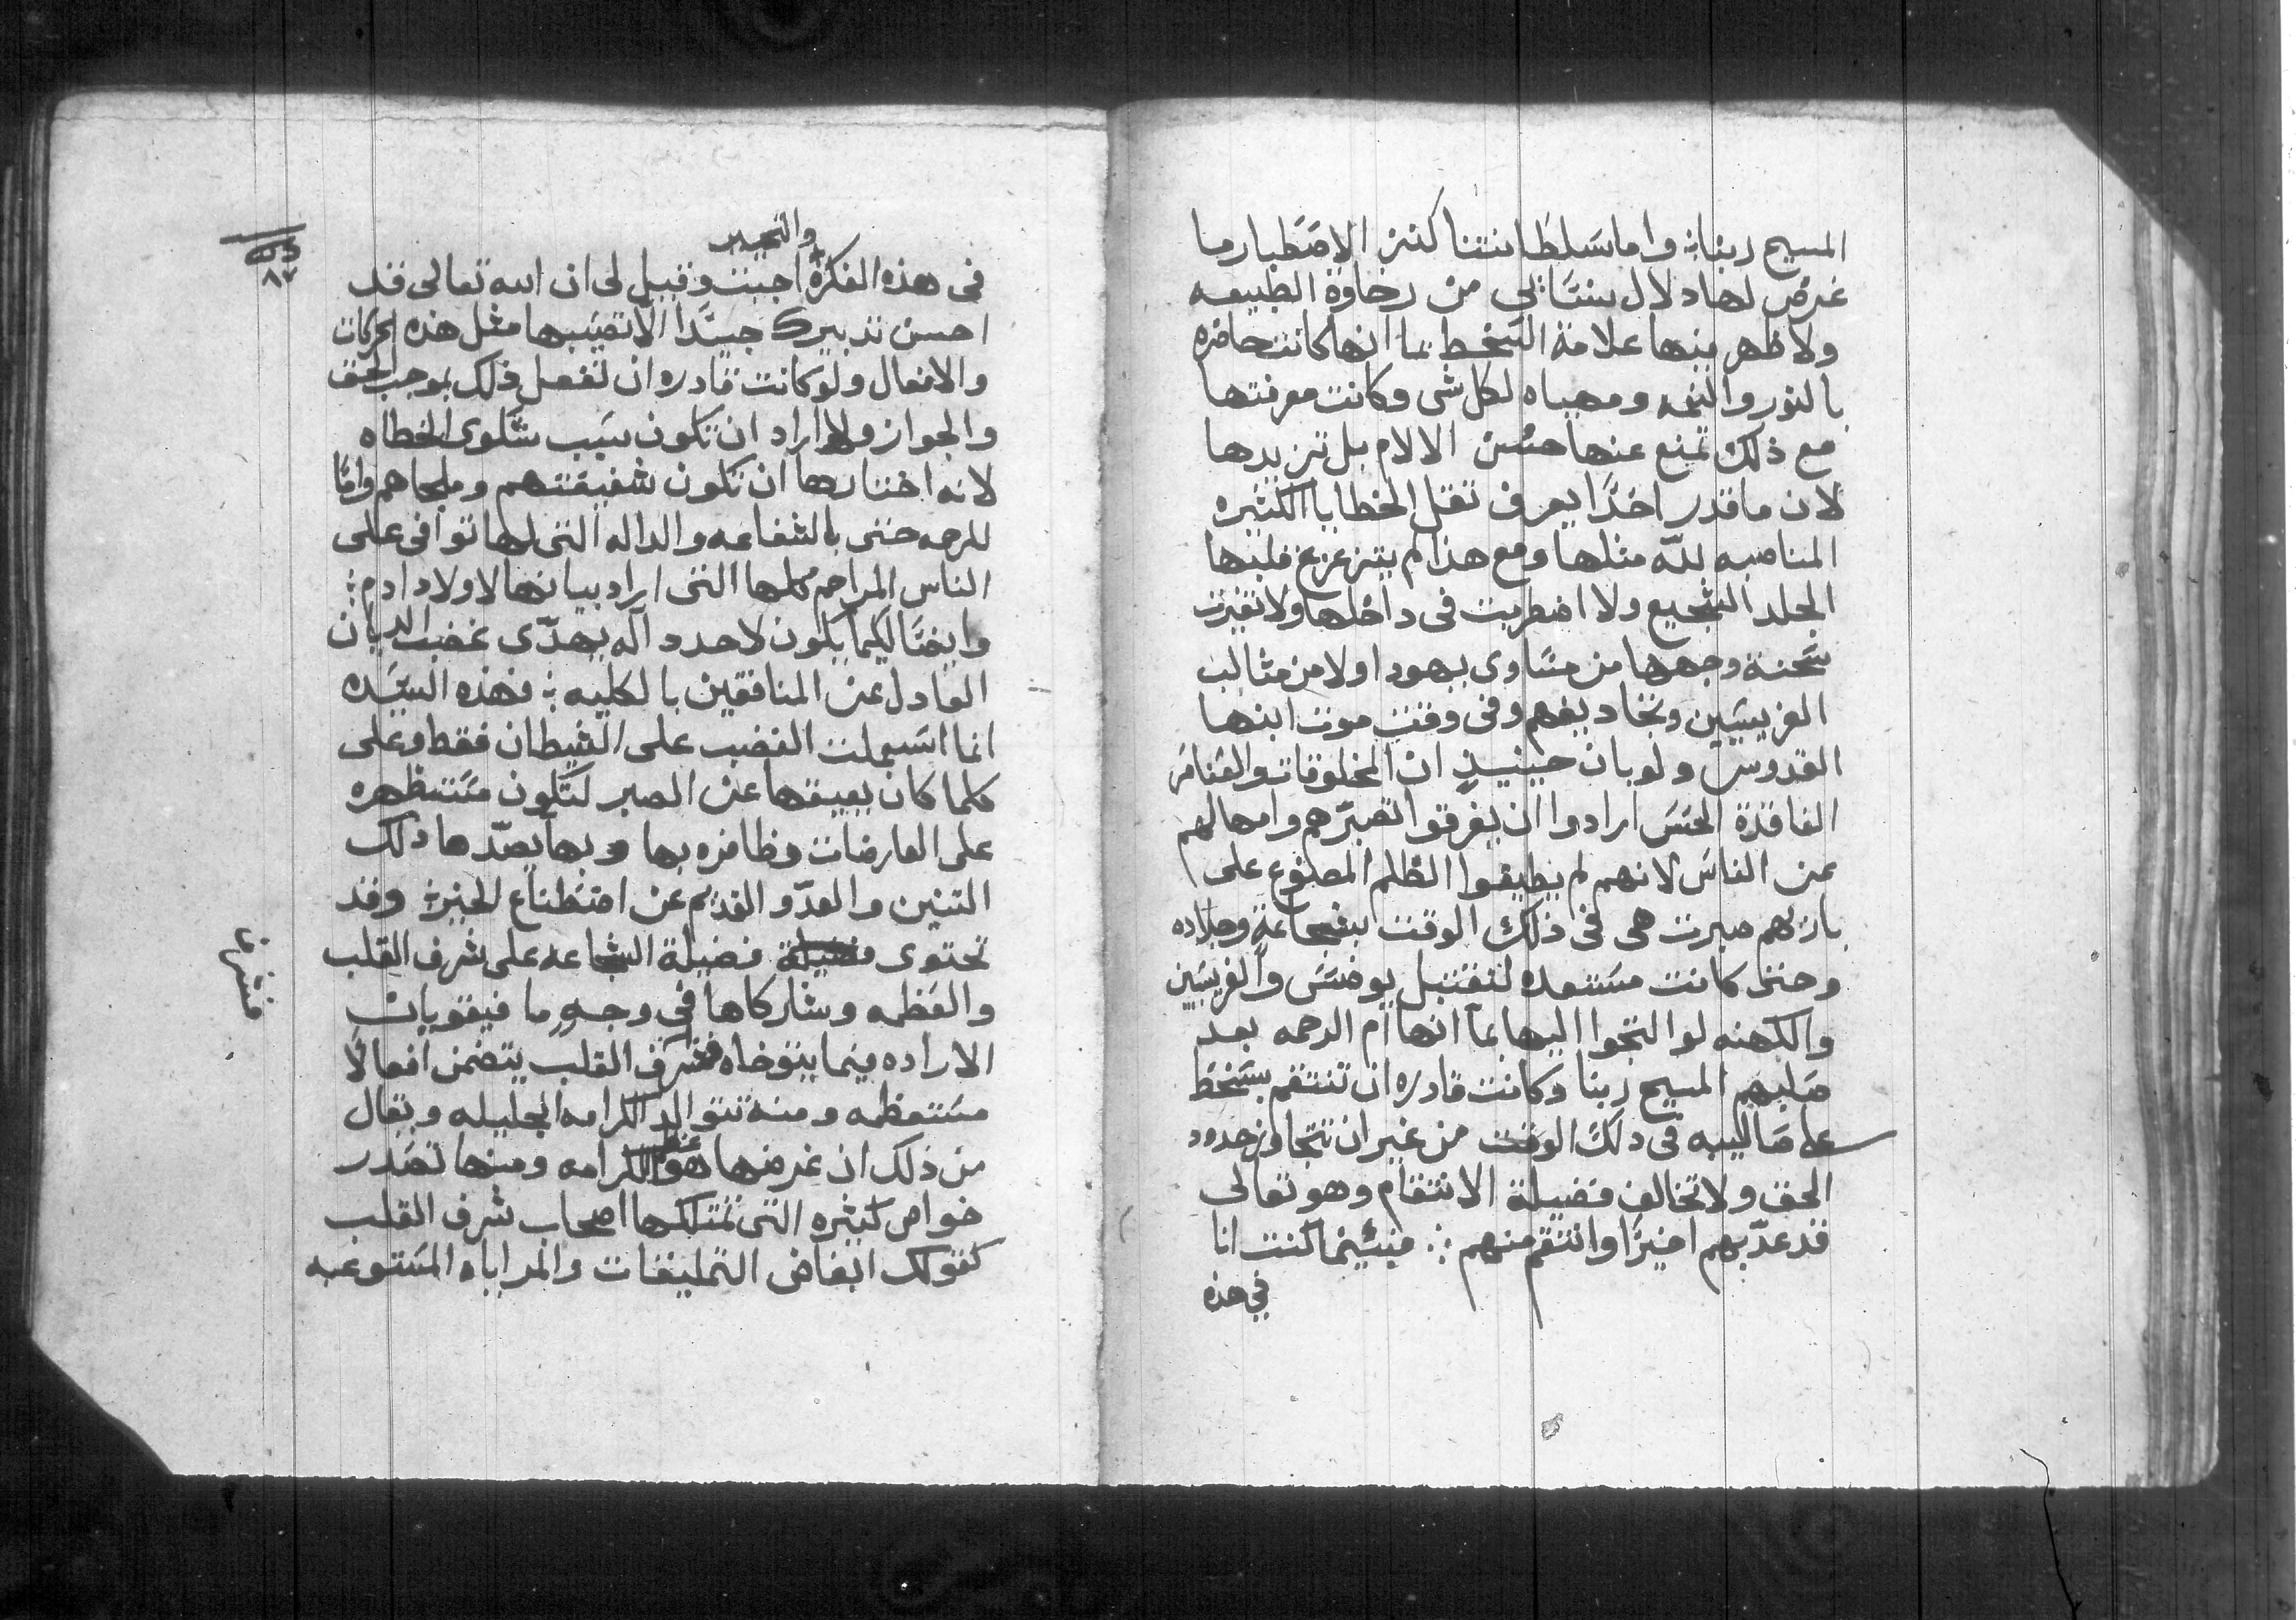 المسيح ربنا؞ واما سلطانتنا كنز الاصطبار ما
عرض لها دلال ينسائي من رخاوة الطبيعه
ولا ظهر منها علامة السخط بما انها كانت حاضره
بالنور والنعمه ومهياه لكل شي وكانت معرفتها
مع ذلك تمنع عنها حسن الالام بل تزيدها
لان ما قدر احدًا يعرف تقل الخطايا الكثيره
المناصبه لله مثلها ومع هذا لم يتزعزع قلبها
الجلد الشجيع ولا اضطربت في داخلها ولا تغيرت
سحنة وجهها من مساوى يهودا ولا من مثالب
الفريسيين وتجاديفهم وفي وقت موت ابنها
القدوس ولو بان حينيذٍ ان المخلوقات والعناصر
الفاقدة الحس ارادوا ان يفرقوا تصبرهم وامهالهم
عن الناس لانهم لم يطيقوا الظلم المصنوع على
باريهم صبرت هي في ذلك الوقت بشجاعةٍ وجلاده
وحتى كانت مستعده لتقتبل يوضس والفريسيين
والكهنه لو التجوا اليها بما انها ام الرحمه بعد
صلبهم المسيح ربنا وكانت قادره ان تنتقم بسخط
على صالبيه في ذلك الوقت من غير ان تتجاوز حدود
الحق ولا تخالف فضيلة الانتقام وهو تعالى
قد عذّبهم اخيرًا وانتقم منهم ؞ فبينما كنت انا
في هذه
والتحيير
في هذه الفكرة اجبت وقيل لي ان الله تعالى قد
احسن تدبيرك جيدًا الا تصيبها مثل هذه الحركات
والافعال ولو كانت قادره ان تفعل ذلك بموجب الحق
والجواز ولا اراد ان تكون سبب شكوى الخطاه
لانه اختارها ان تكون شفيعتهم وملجاهم وامًا
للرحمه حتى بالشفاعه والداله التي لها توافي على
الناس المراحم كلها التي اراد بيانها لاولاد ادم؞
وايضًا ليكما يكون لاحد داله يهدّى غضب الديان
العادل عن المنافقين بالكليه؞ فهذه السيده
انما استعملت الغضب على الشيطان فقط وعلى
كلما كان يعيقها عن الصبر لتكون مستظهره
على العارضات وظافره بها وبها يصدّها ذلك
التنين والعدّو القديم عن اصطناع الخير؞ وقد
تحتوى فضيلة فضيلة الشجاعه على شرف القلب
والعظمه وشاركاها في وجهٍ ما فيقويان
الاراده فيما يتوخاه فشرف القلب يتضمن افعالًا
مستعظمه ومنه تتوالد الكرامه الجليله ويقال
من ذلك ان غرضها هو عظم الكرامه ومنها تصدر
خواص كثيره التي تمتلكها اصحاب شرف القلب
كقولك ابغاض التمليقات والمراياه المستوعبه
٨٧